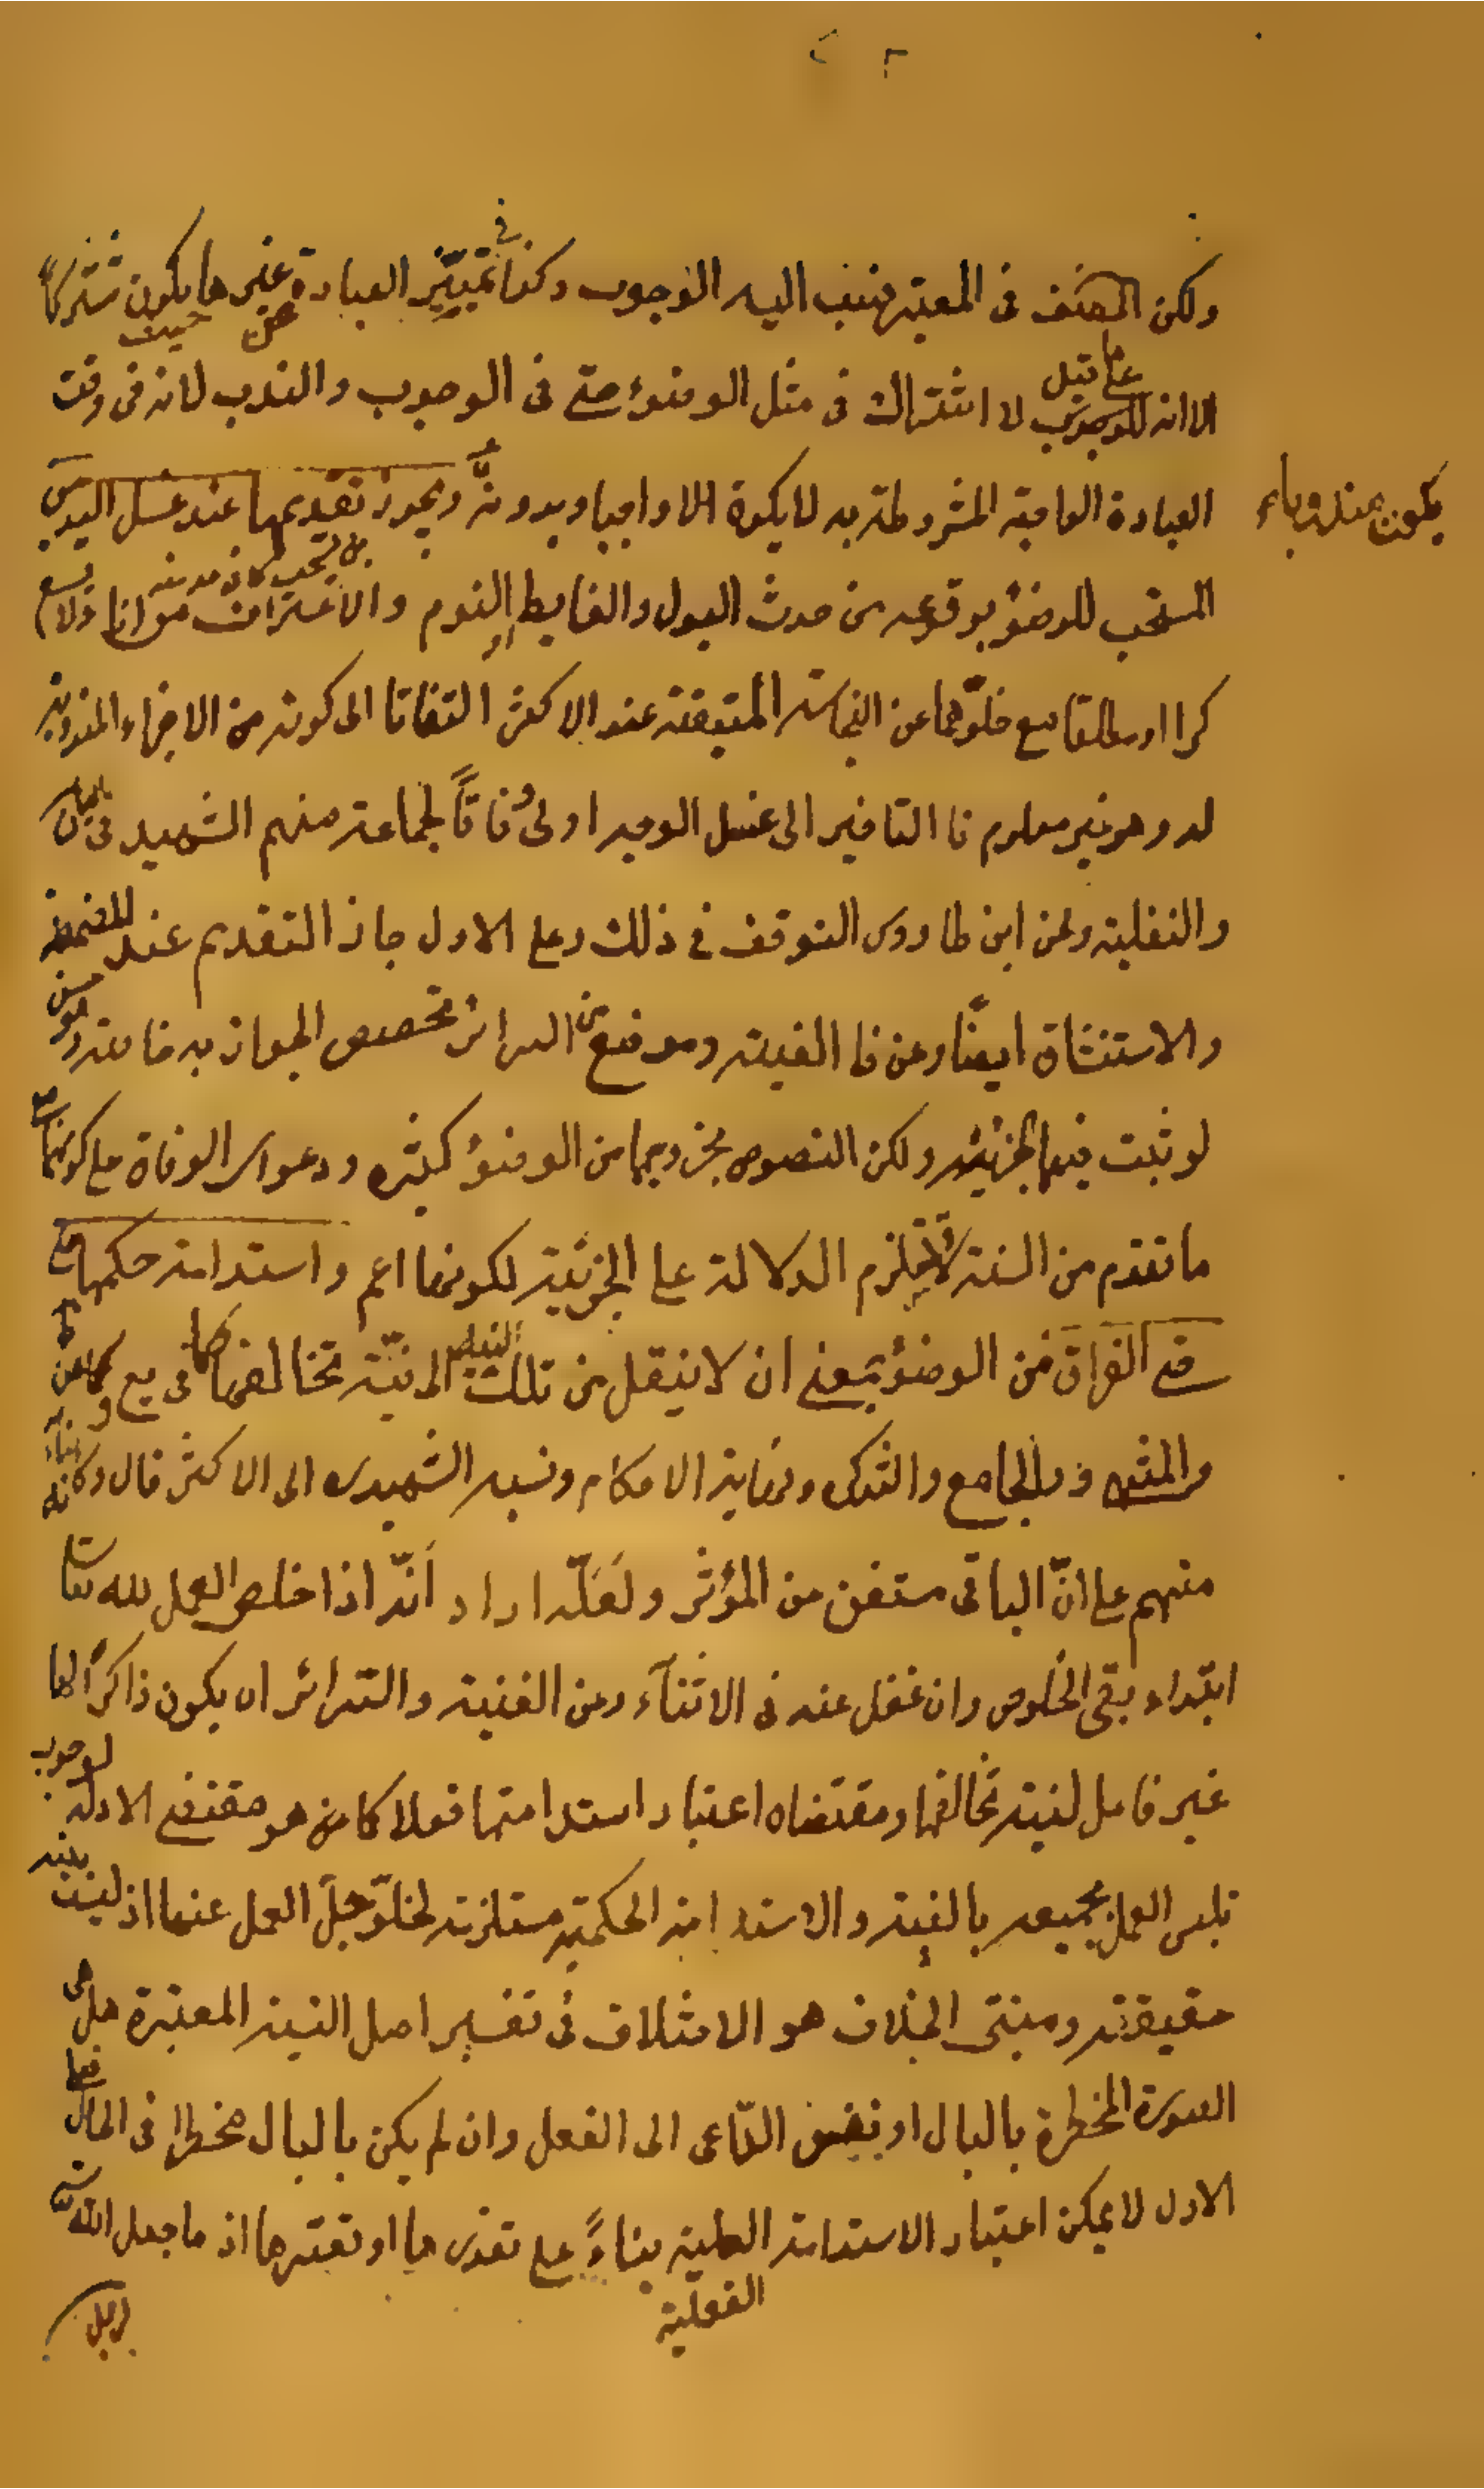 ولكن المصنف فى المعتبر نسب اليه الوجوب وكذا فى تمييز العبادة عن غيرها حيث يكون مشتركا
الا انه على ما قيل لا اشتراك فى مثل الوضوء حتى فى الوجوب والندب لانه فى وقت
العبادة الواجبة المشروطة به لا يكون الا واجبا وبدونه ويجوز تقديمها عند غسل اليدين
يكون مندوباء
المستحب للوضوء بوقوعه من حدث البول والغايط او النوم والاغتراف من اناء
كرا او مطلقا مع خلوهما عن النجاسة المتيقنة عند الاكثر التفاتا الى كونه من الاجزاء المندوبة
له وهو غير معلوم فا التاخير الى غسل الوجه اولى وفاقاً لجماعة منهم الشهيد فى البيان
والنفلية وعن ابن طاووس التوقف فى ذلك وعلى الاول جاز التقديم عند المضمضة
والاستنشاق ايضا وعن ظا الغنية وموضع من السرائر تخصيص الجواز به خاصة وهو حسن
لو ثبت فيهما الجزئية ولكن النصوص بخروجهما من الوضوء كثيره ودعوى الوفاق على كونهما
ما تقدم من السنة لا تستلزم الدلالة على الجزئية لكونها اعم واستدامة حكمها
حتى الفراق من الوضوء بمعنى ان لا ينتقل من تلك النية الى نية تخالفها كما فى يع و كما عن
والمنتهى والجامع والتذكره ونهاية الاحكام ونسبه الشهيد الى الاكثر قال وكانه بناء
منهم على انّ الباقى مستغن من المؤثر ولعلّه اراد انّه اذا خلص العمل لله تعا
ابتداء بقى الخلوص وان غفل عنه فى الاثناء وعن الغنية والسرائر ان يكون ذاكراً لها
غير فاعل لنية تخالفها ومقتضاه اعتبار استدامتها فعلا كما هو مقتضى الادلة لوجوب
تلبس العمل بجميعه بالنية والاستدامة الحكمية مستلزمة لخلوّ جلّ العمل عنها اذ ليست بنية
حقيقة ومبنى الخلاف هو الاختلاف فى تفسير اصل النية المعتبرة هل هى
الصورة المخطرة بالبال او نفس الدّاعى الى الفعل وان لم يكن بالبال مخطرا فى الحال فعلى
الاول لا يمكن اعتبار الاستدامة الفعلية بناءً على تعذرها او تعسرها اذ ما جعل الله